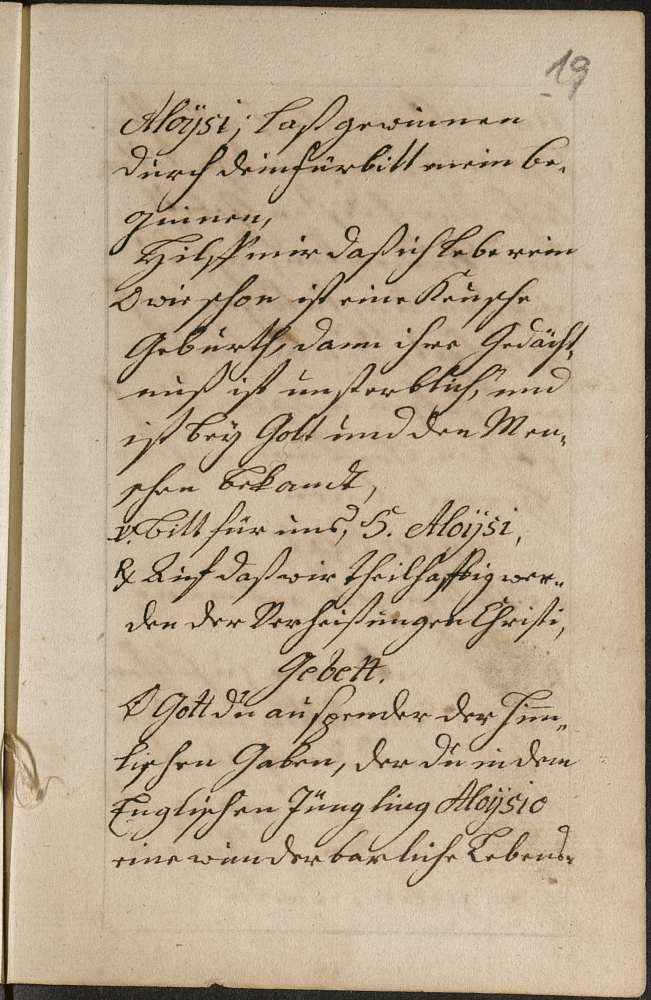 19
Aloÿsi, laß gewinnen
durch dein fürbitt mein be,
ginnen,
Hilff mir daß ich lebe rein
O wie schon ist eine Keusche
Geburth, dann ihre Gedächt,
nuß ist unsterblich, und
ist beÿ Gott und den Men,
schen bekandt,
V. bitt für uns, S. Aloÿsi,
R Auf daß wir theilhafftig wer„
den der Verheisungen Christi,
Gebett.
O Gott du ausspender der him„
lischen Gaben, der du in dem
Englischen Jüngling Aloÿsio
eine wunderbarliche Lebens„